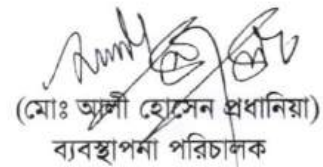 (মোঃ আলী হোসেন প্রধানিয়া)
ব্যবস্থাপনা পরিচালক